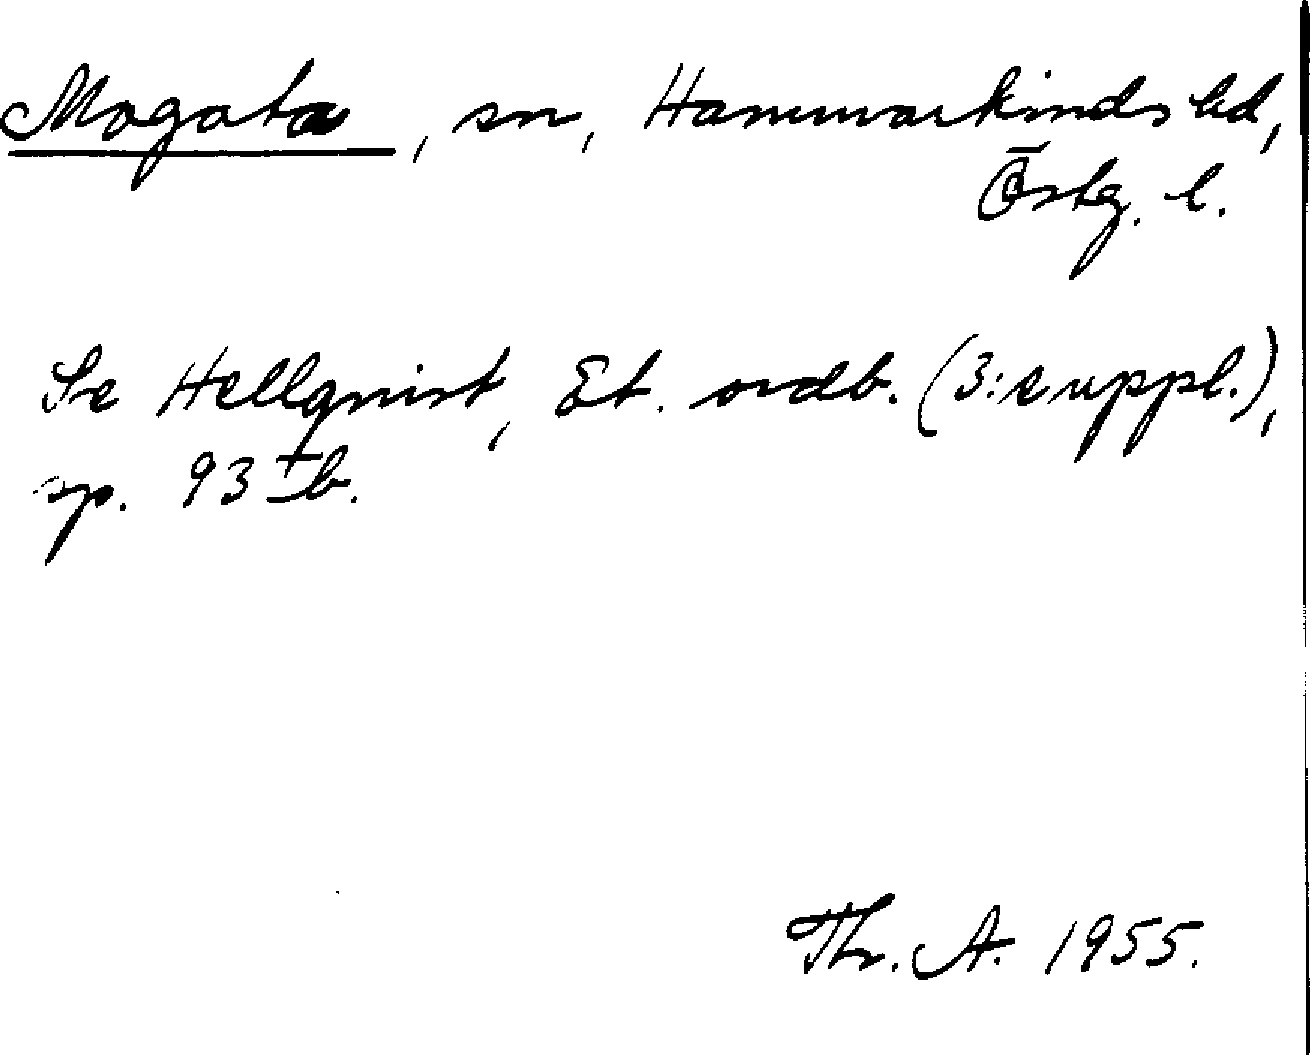 Mogata, sn, Hammarkinds hd,
Östg. l.
Se Hellqvist, Et. ordb. (3:e uppl.),
sp. 93 I b.
Thr. A. 1955.